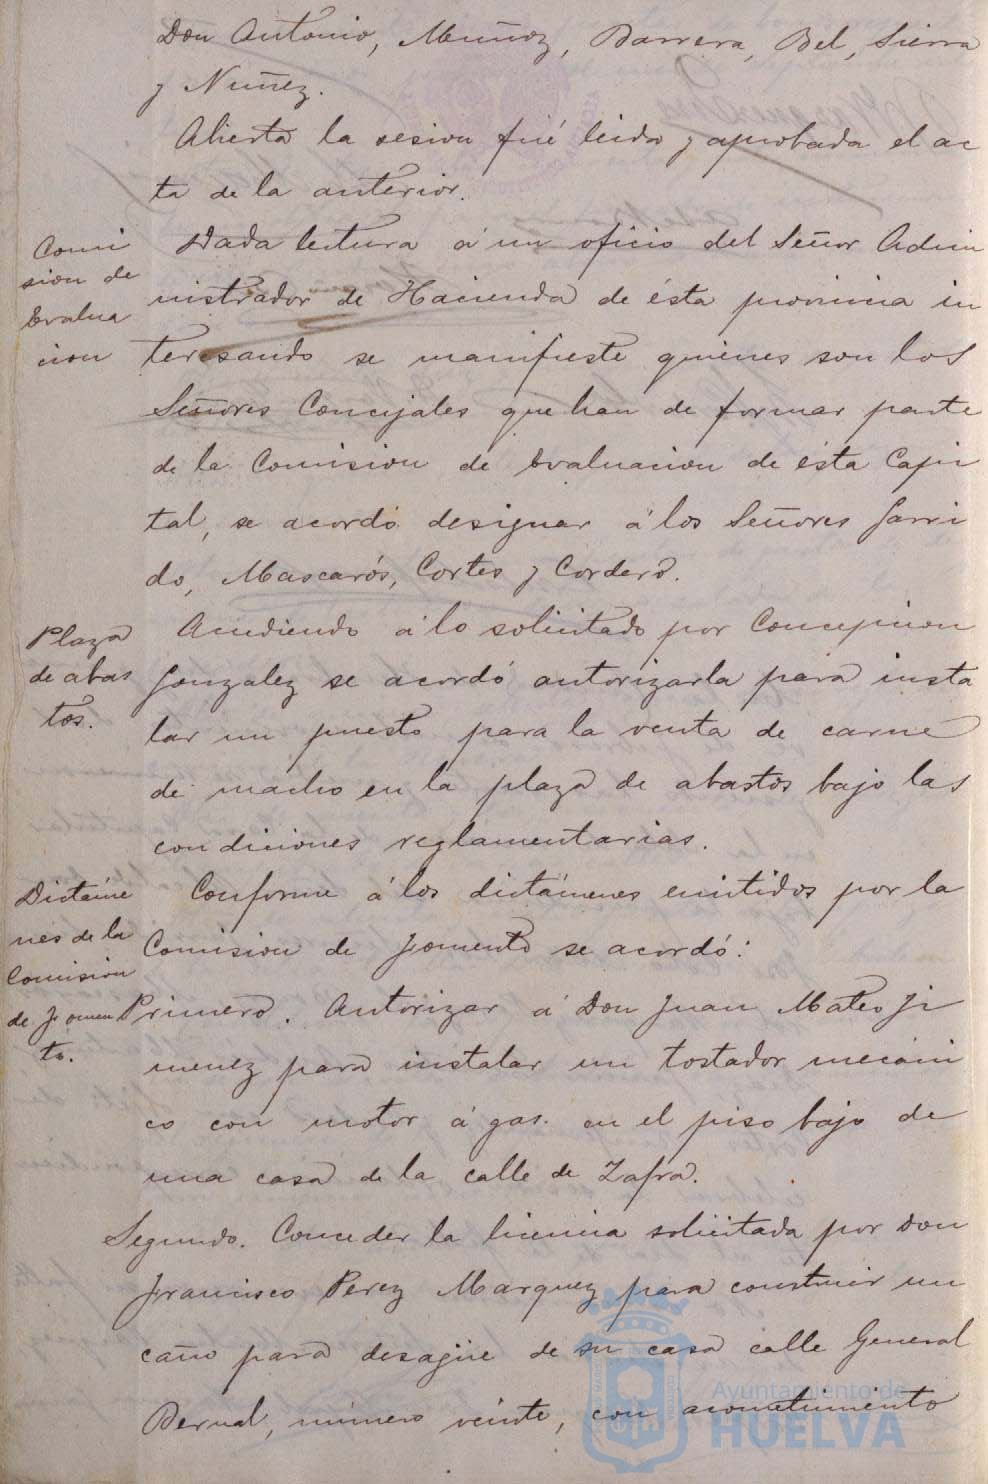 Don Antonio, Muñoz, Barrera, Bel, Sierra
y Nuñez.
Abierta la sesion fué leida y aprobada el ac
ta de la anterior.
Comi
sion de
Evalua
cion
Dada lectura á un oficio del Señor Admi
nistrador de Hacienda de ésta provincia in
teresando se manifieste quienes son los
Señores Concejales que han de formar parte
de la Comision de Evaluacion de ésta Capi
tal, se acordó designar á los Señores Garri
do, Mascarós, Cortes y Cordero.
Plaza
de abas
tos.
Accediendo á lo solicitado por Concepcion
Gonzalez se acordó autorizarla para insta
lar un puesto para la venta de carne
de macho en la plaza de abastos bajo las
condiciones reglamentarias.
Dictáme
nes de la
Comision
de Fomen
to.
Conforme á los dictámenes emitidos por la
Comision de Fomento se acordó:
Primero. Autorizar á Don Juan Mateo Ji
menez para instalar un tostador mecáni
co con motor á gas en el piso bajo de
una casa de la calle de Zafra.
Segundo. Conceder la licencia solicitada por Don
Francisco Perez Marquez para construir un
caño para desagüe de su casa calle General
Bernal, número veinte, con acometimiento
Ayuntamiento de
HUELVA